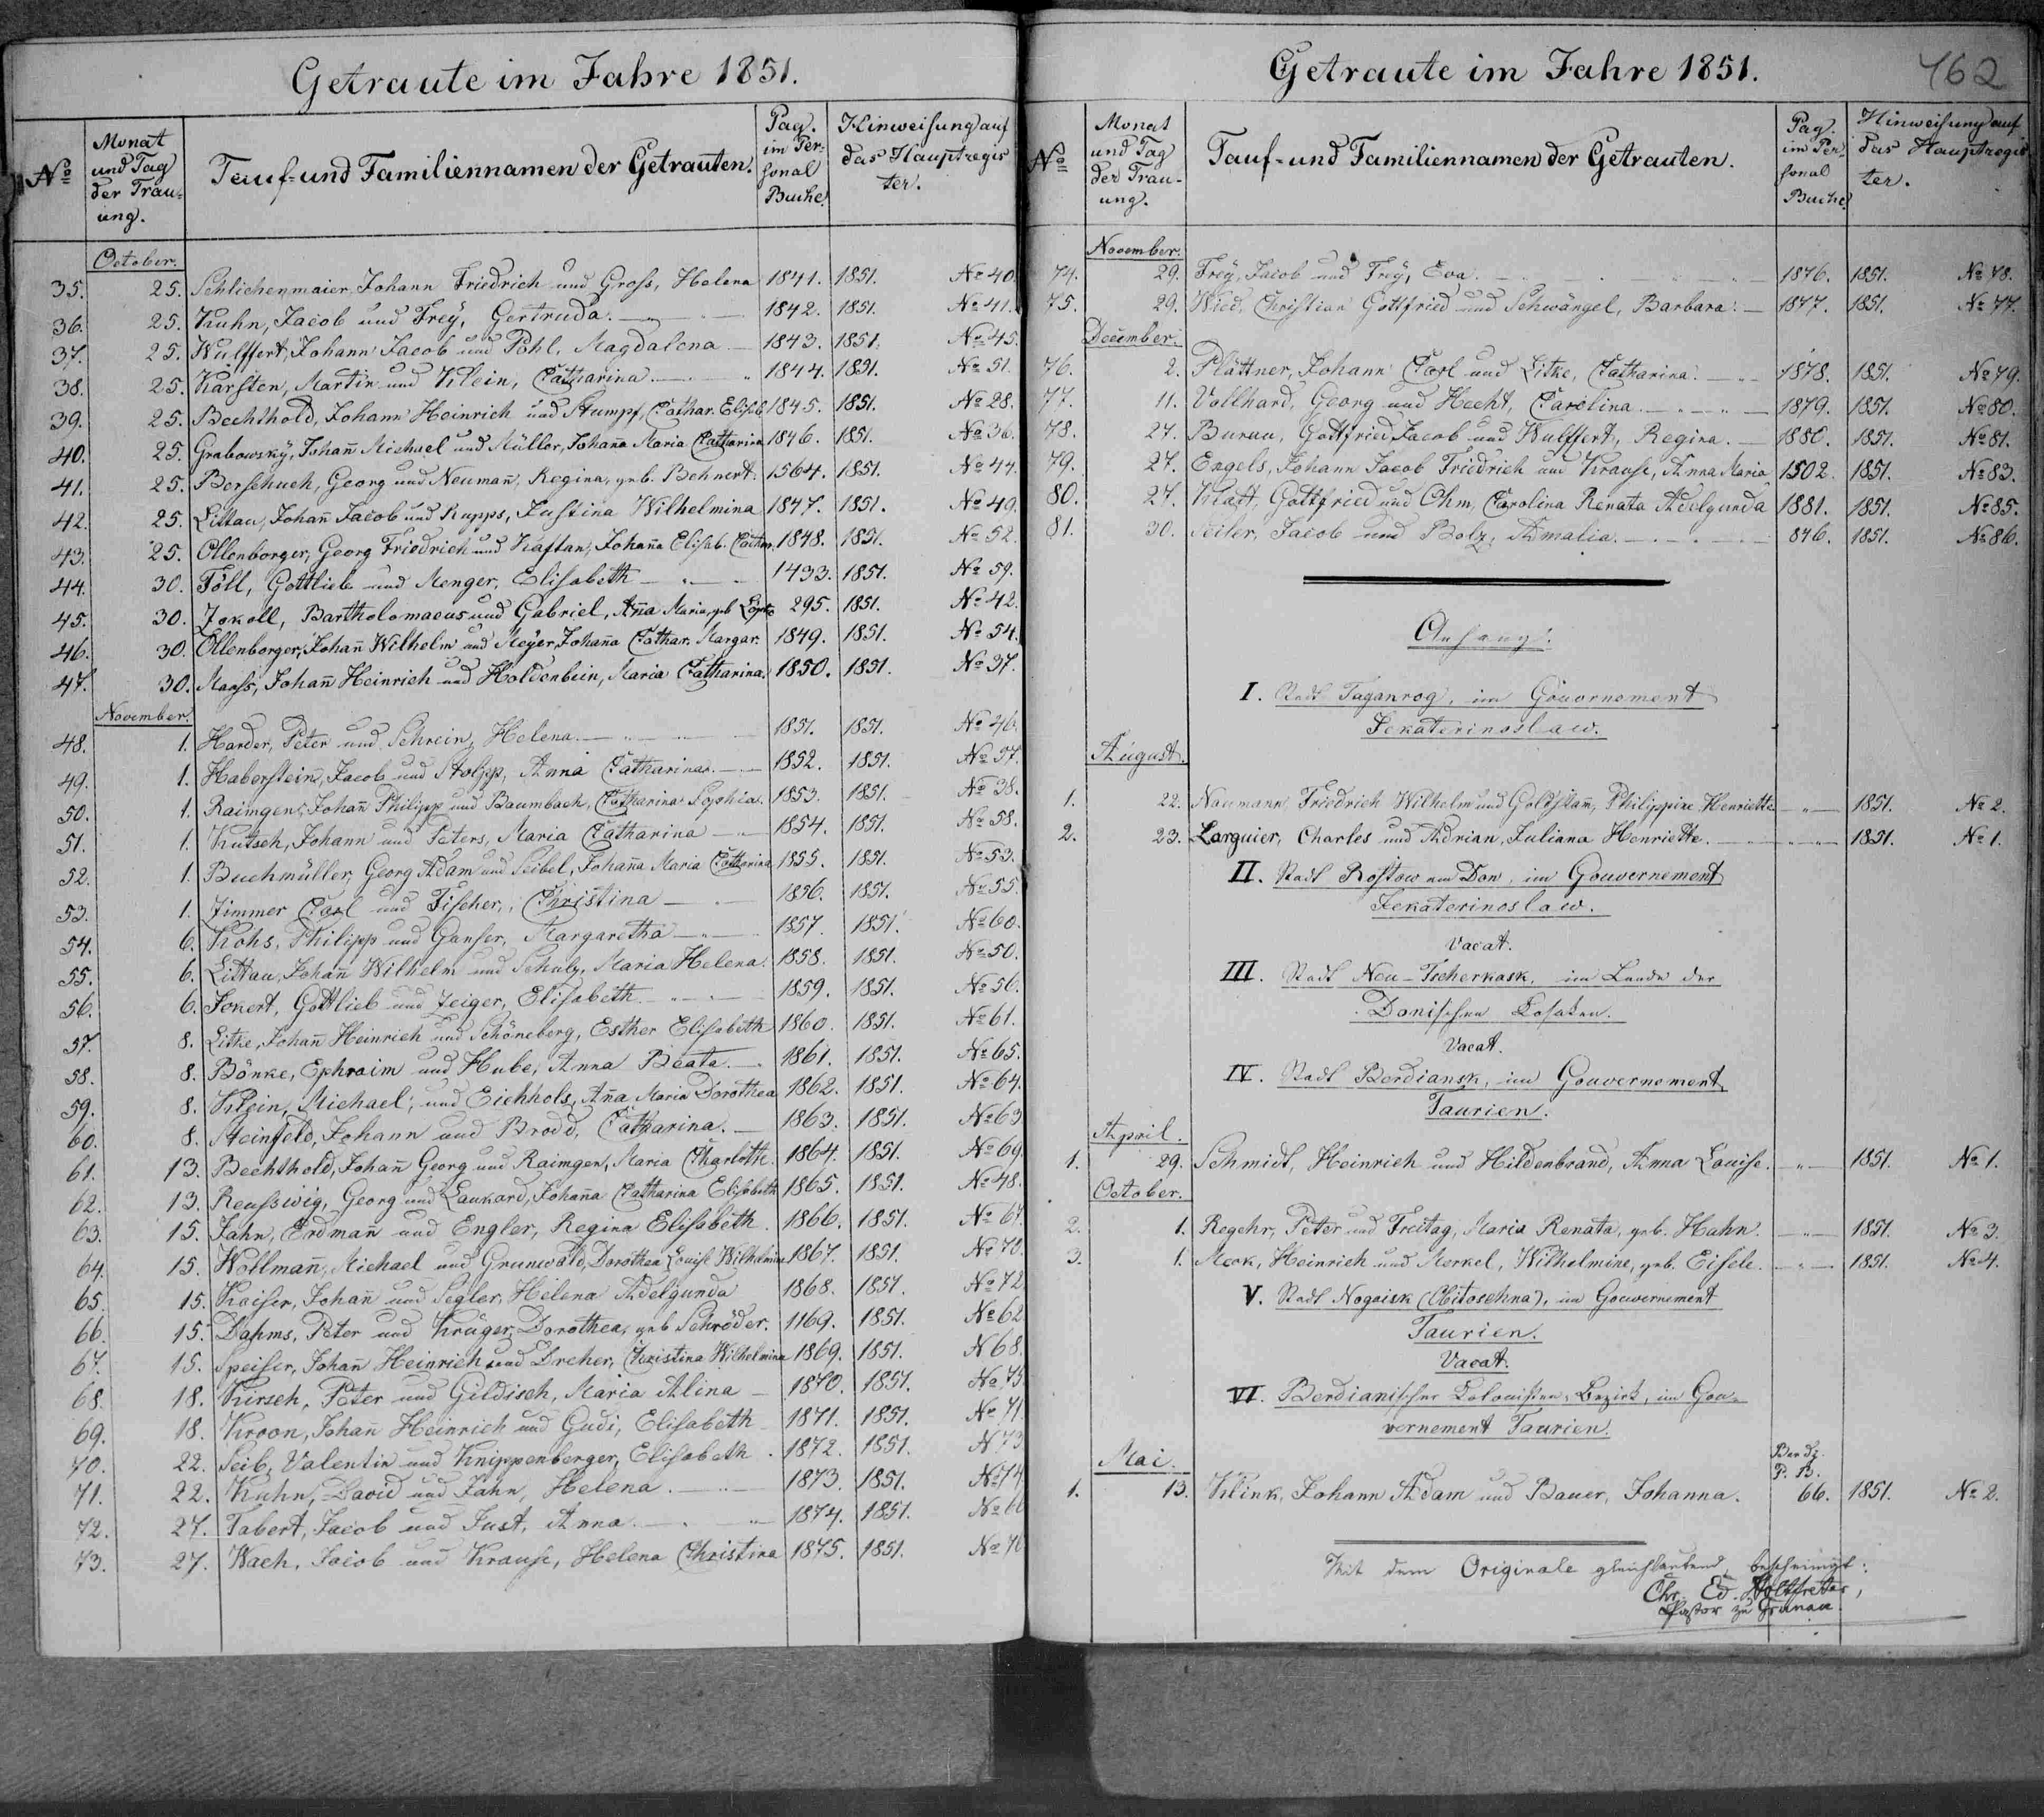 Getraute im Jahre 1851.
No Monat und Tag der Trauung. Tauf- und Familiennamen der Getrauten. Pag. im Personal Buche. Hinweisung auf das Hauptregister.
October.
35. 25. Schlichenmaier, Johann Friedrich und Gross, Helena 1841. 1851. No 40.
36. 25. Kuhn, Jacob und Frey, Gertruda. 1842. 1851. No 41.
37. 25. Wulffert, Johann Jacob und Pohl, Magdalena 1843. 1851. No 45.
38. 25. Karsten, Martin und Klein, Catharina 1844. 1851. No 51.
39. 25. Bechthold, Johann Heinrich und Stumpf, Cathar. Elisab. 1845. 1851. No 28.
40. 25. Grabowsky, Johañ Michael und Müller, Johaña Maria Catharina 1846. 1851. No 36.
41. 25. Berschuch, Georg und Neumañ, Regina, geb. Behnert. 1564. 1851. No 44.
42. 25. Littau, Johañ Jacob und Rupps, Justina Wilhelmina 1847. 1851. No 49.
43. 25. Ollenborger, Georg Friedrich und Kaftan, Johaña Elisab. Cathar. 1848. 1851. No 52.
44. 30. Föll, Gottlieb und Menger, Elisabeth 1433. 1851. No 59.
45. 30. Jokoll, Bartholomaeus und Gabriel, Aña Maria, geb. 295. 1851. No 42.
46. 30. Ollenborger, Johañ Wilhelm und Meyer, Johaña Cathar. Margar. 1849. 1851. No 54.
47. 30. Manss, Johañ Heinrich und Holdenbein, Maria Catharina. 1850. 1851. No 37.
November.
48. 1. Harder, Peter und Schrein, Helena. 1851. 1851. No 46.
49. 1. Haberstein, Jacob und Stolpp, Anna Catharina. 1852. 1851. No 57.
50. 1. Raimgen, Johañ Philipp und Baumbach, Catharina Sophia. 1853. 1851. No 38.
51. 1. Kutsch, Johann und Peters, Maria Catharina 1854. 1851. No 58.
52. 1. Buchmüller, Georg Adam und Seibel, Johaña Maria Catharina 1855. 1851. No 53.
53. 1. Zimmer Carl und Fischer, Christina 1856. 1851. No 55.
54. 6. Kohs, Philipp und Ganser, Margaretha 1857. 1851. No 60.
55. 6. Littau, Johañ Wilhelm und Schulz, Maria Helena. 1858. 1851. No 50.
56. 6. Jekert, Gottlieb und Zeiger, Elisabeth 1859. 1851. No 56.
57. 8. Litke, Johañ Heinrich und Schöneberg, Esther Elisabeth 1860. 1851. No 61.
58. 8. Bönke, Ephraim und Hube, Anna Beata. 1861. 1851. No 65.
59. 8. Klein, Michael, und Eichholz, Aña Maria Dorothea 1862. 1851. No 64.
60. 8. Steinfeld, Johann und Brodd, Catharina. 1863. 1851. No 63
61. 13. Bechthold, Johañ Georg und Raimgen, Maria Charlotte. 1864. 1851. No 69.
62. 13. Reusswig, Georg und Laukard, Johaña Catharina Elisabeth 1865. 1851. No 48.
63. 15. Jahn, Erdmañ und Engler, Regina Elisabeth. 1866. 1851. No 67.
64. 15. Wollmañ, Michael und Grunwald, Dorothea Louise Wilhelmine 1867. 1851. No 70.
65. 15. Kaiser, Johañ und Segler, Helena Adelgunda 1868. 1851. No 72
66. 15. Dahms, Peter und Krüger, Dorothea, geb Schröder. 1169. 1851. No 62
67. 15. Speiser, Johañ Heinrich und Dreher, Christina Wilhelmina 1869. 1851. N 68.
68. 18. Kirsch, Peter und Gildisch, Maria Alina 1870. 1851. No 75
69. 18. Kroon, Johañ Heinrich und Gudi, Elisabeth 1871. 1851. No 71
70. 22. Seib, Valentin und Knippenberger, Elisabeth. 1872. 1851. N 73
71. 22. Kuhn, David und Jahn, Helena. 1873. 1851. No 74
72. 27. Tabert, Jacob und Just, Anna. 1874. 1851. No 66
73. 27. Wach, Jacob und Krause, Helena Christina 1875. 1851. No 76
Getraute im Jahre 1851. 462
No Monat und Tag der Trauung. Tauf- und Familiennamen der Getrauten. Pag. im Personal Buche. Hinweisung auf das Hauptregister.
November.
74. 29. Frey, Jacob und Frey, Eva. 1876. 1851. No 78.
75. 29. Wied, Christian Gottfried und Schwängel, Barbara. 1877. 1851. No 77.
December.
76. 2. Plättner, Johann Carl und Litke, Catharina. 1878. 1851. No 79.
77. 11. Vollhard, Georg und Hecht, Carolina. 1879. 1851. No 80.
78. 27. Burau, Gottfried Jacob und Wulffert, Regina. 1880. 1851. No 81.
79. 27. Engels, Johann Jacob Friedrich und Krause, Anna Maria 1502. 1851. No 83.
80. 27. Klatt, Gottfried und Ohm, Carolina Renata Adelgunda 1881. 1851. No 85.
81. 30. Seiler, Jacob und Bolz, Amalia. 846. 1851. No 86.
Anhang.
I. Stadt Taganrog, im Gouvernement
Jekaterinoslaw.
August.
1. 22. Naumann, Friedrich Wilhelm und Goldstañ, Philippine Henriette 1851. No 2.
2. 23. Larguier, Charles und Adrian, Juliana Henriette. 1851. No 1.
II. Stadt Rostow am Don, im Gouvernement
Jekaterinoslaw.
Vacat.
III. Stadt Neu-Tscherkask, im Lande der
Donischen Kosaken.
Vacat.
IV. Stadt Berdiansk, im Gouvernement
Taurien.
April.
1. 29. Schmidt, Heinrich und Hildenbrand, Anna Louise. 1851. No 1.
October.
2. 1. Regehr, Peter und Freitag, Maria Renata, geb. Hahn. 1851. No 3.
3. 1. Merk, Heinrich und Merkel, Wilhelmine, geb. Eisele. 1851. No 4.
V. Stadt Nogaisk (Obitoschna), im Gouvernement
Taurien.
Vacat.
VI. Berdianischer Kolonisten-Bezirk, im Gou-
vernement Taurien.
Mai.
Berdj.
P. B.
1. 13. Klink, Johann Adam und Bauer, Johanna. 66. 1851. No 2.
Mit dem Originale gleichlautend, bescheinigt:
Chr. Ed. Holtfreter,
Pastor zu Grunau.